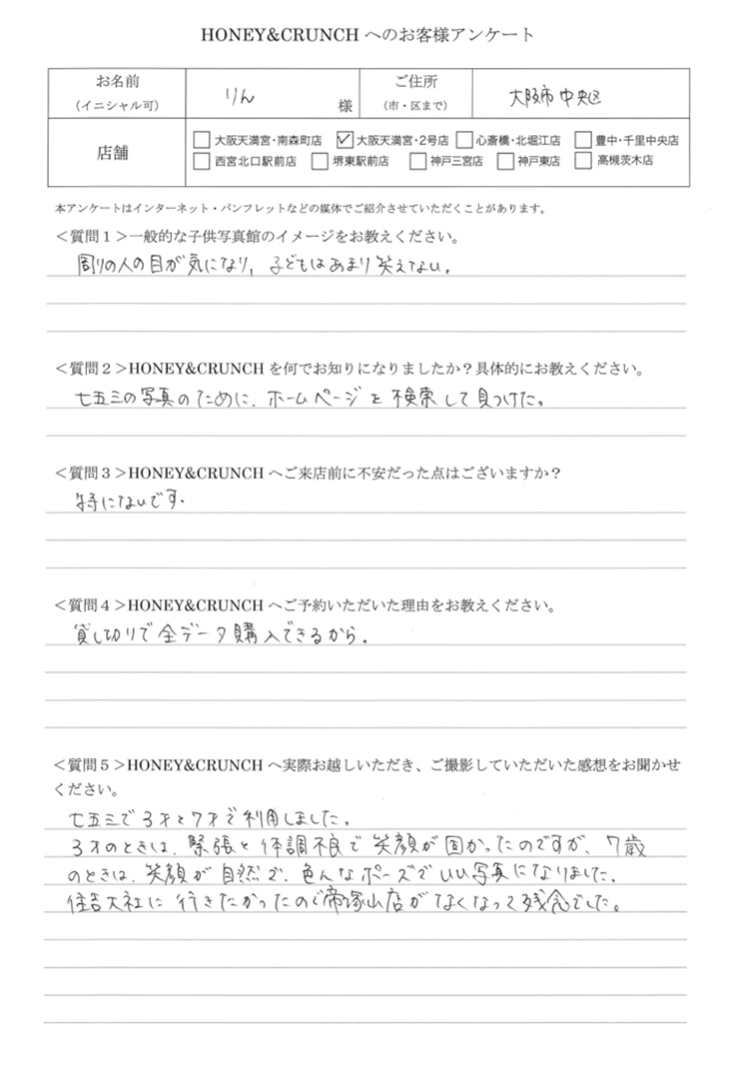 HONEY&CRUNCH へのお客様アンケート
お名前
(イニシャル可)
りん
様
ご住所
(市・区まで)
大阪市中央区
店舗
大阪天満宮・南森町店 ✓大阪天満宮・2号店 心斎橋・北堀江店 豊中・千里中央店
西宮北口駅前店 堺東駅前店 神戸三宮店 神戸東店 高槻茨木店
本アンケートはインターネット・パンフレットなどの媒体でご紹介させていただくことがあります。
<質問1>一般的な子供写真館のイメージをお教えください。
周りの人の目が気になり、子どもはあまり笑えない。
<質問2>HONEY&CRUNCH を何でお知りになりましたか?具体的にお教えください。
七五三の写真のために、ホームページを検索して見つけた。
<質問3>HONEY&CRUNCH へご来店前に不安だった点はございますか?
特にないです。
<質問4>HONEY&CRUNCH へご予約いただいた理由をお教えください。
貸し切りで全データ購入できるから。
<質問5>HONEY&CRUNCH へ実際お越しいただき、ご撮影していただいた感想をお聞かせ
ください。
七五三で3才と7才で利用しました。
3才のときは、緊張と体調不良で笑顔が固かったのですが、7歳
のときは、笑顔が自然で、色んなポーズでいい写真になりました。
住吉大社に行きたかったので帝塚山店がなくなって残念でした。